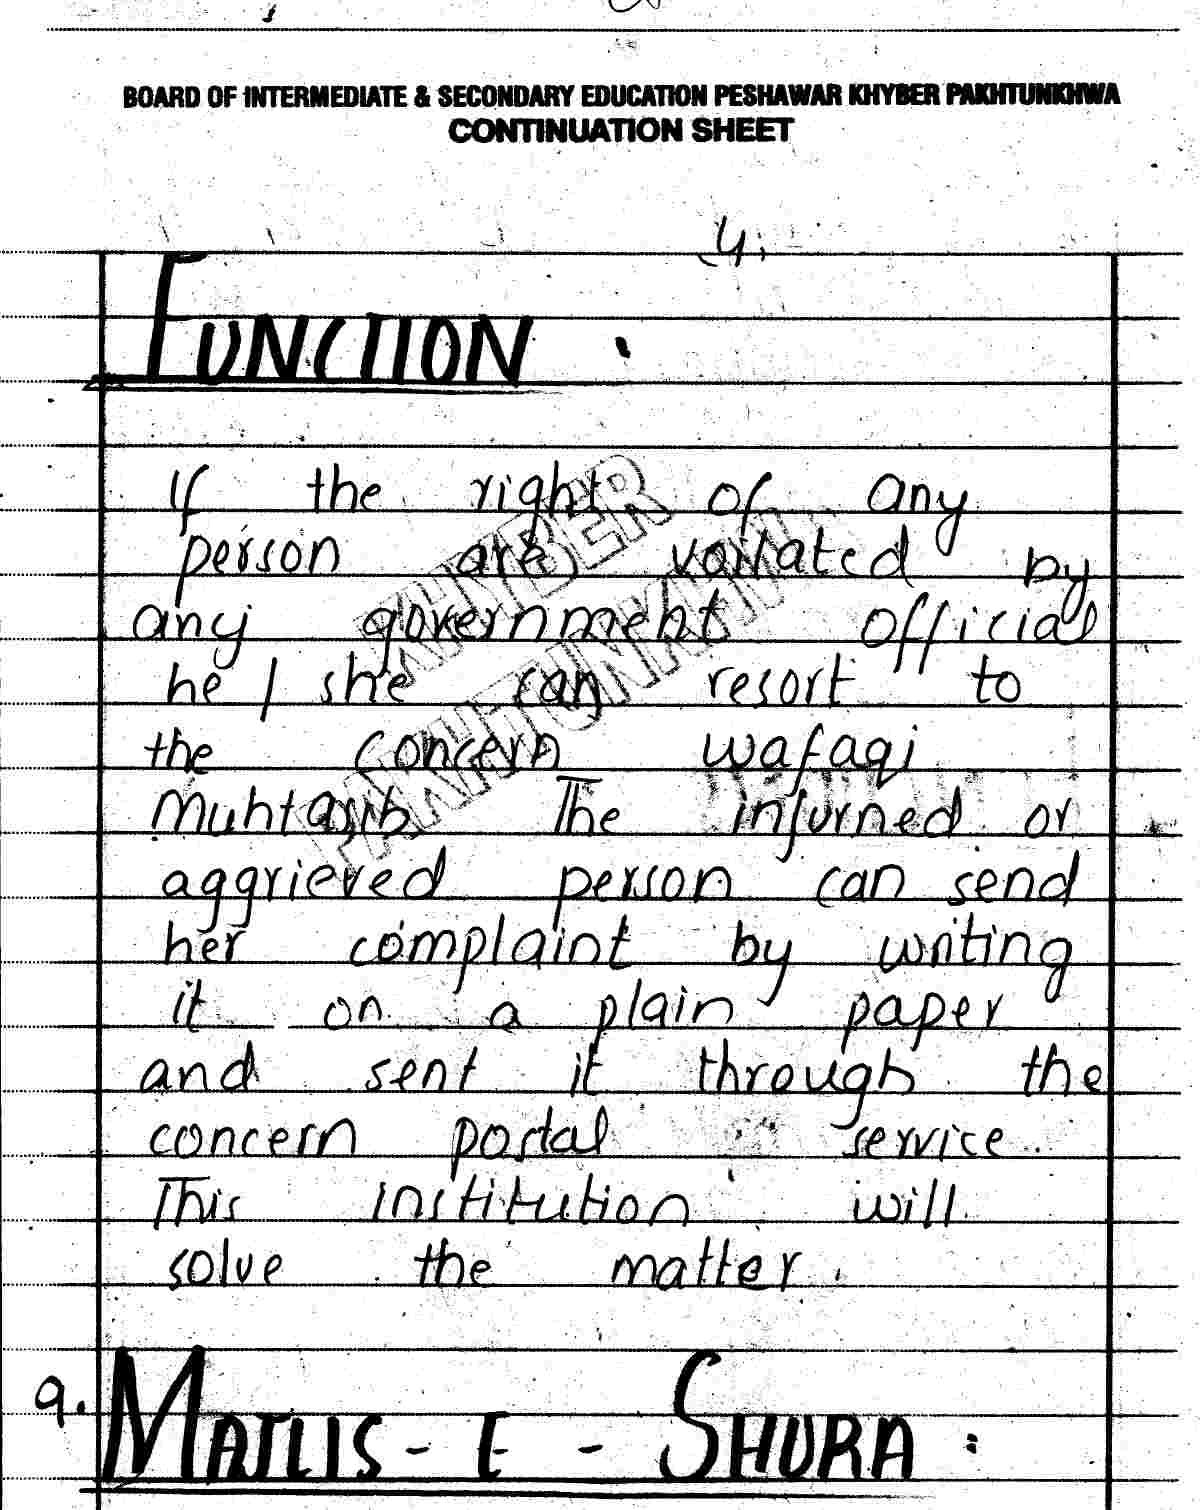 BOARD OF INTERMEDIATE & SECONDARY EDUCATION PESHAWAR KHYBER PAKHTUNKHWA
CONTINUATION SHEET
4.
FUNCTION .
If the right of any
person are voilated by
any government official
he / she can resort to
the concern wafaqi
Muhtasib. The injurned or
aggrieved person can send
her complaint by writing
it on a plain paper
and sent it through the
concern postal service.
This institution will
solve the matter.
9. MAJLIS - E - SHURA :
KHYBER
PAKHTUNKHWA